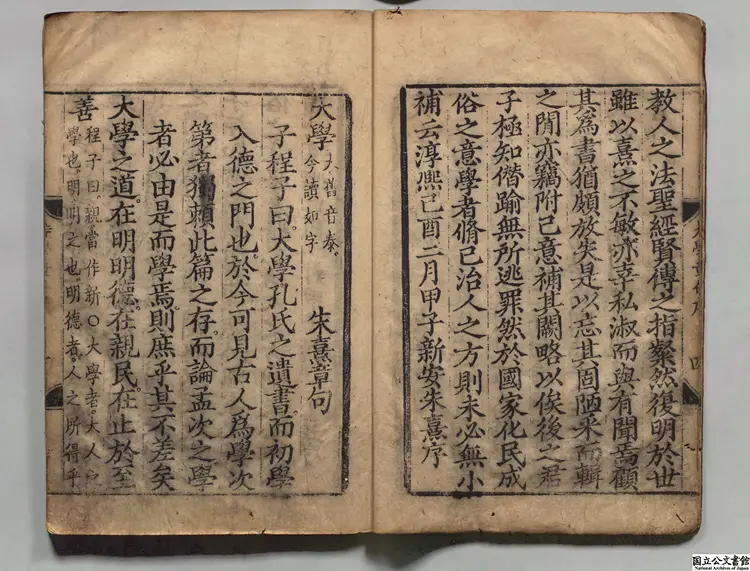 教人之法聖經賢傳之指粲然復明於世
雖以熹之不敏亦幸私淑而與有聞焉顧
其爲書猶頗放失是以忘其固陋采而輯
之閒亦竊附己意補其闕略以俟後之君
子極知僭踰無所逃罪然於國家化民成
俗之意學者脩己治人之方則未必無小
補云淳熈己酉二月甲子新安朱熹序
大學 大舊音泰。
今讀如字
朱熹章句
子程子曰。大學孔氏之遺書。而初學
入德之門也。於今可見古人爲學次
第者。獨賴此篇之存。而論孟次之。學
者必由是而學焉。則庶乎其不差矣
大學之道。在明明德。在親民。在止於至
善 程子曰。親當作新○大學者。大人之
學也。明。明之也。明德者。人之所得乎
国立公文書館
National Archives of Japan